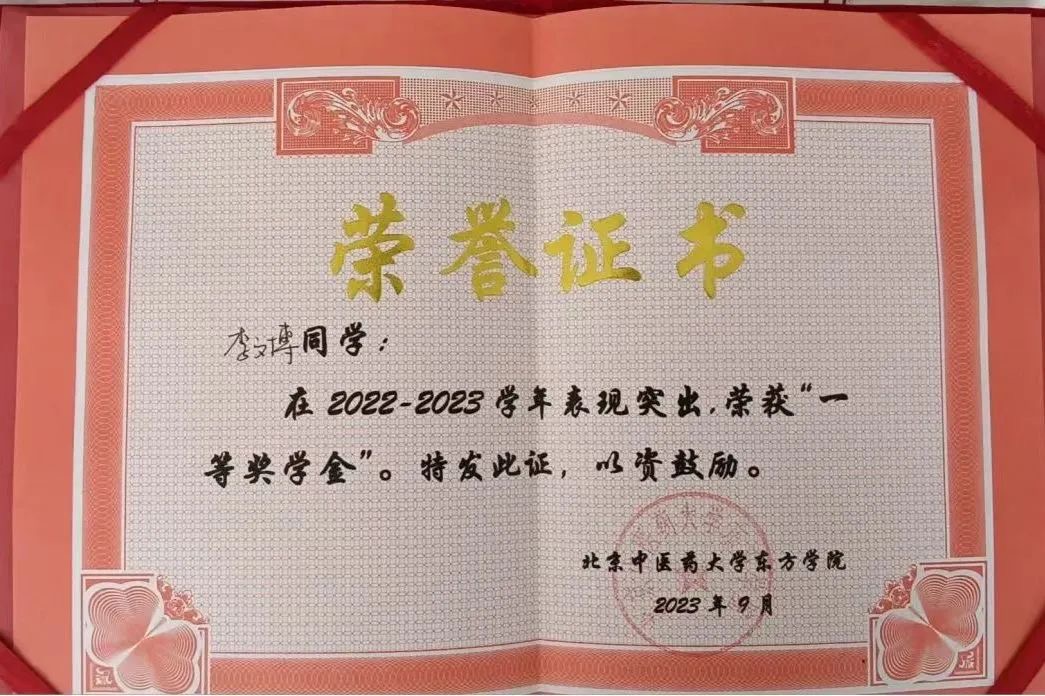 荣誉证书
李文博同学：
在2022-2023学年表现突出，荣获“一
等奖学金”。特发此证，以资鼓励。
北京中医药大学东方学院
2023年9月